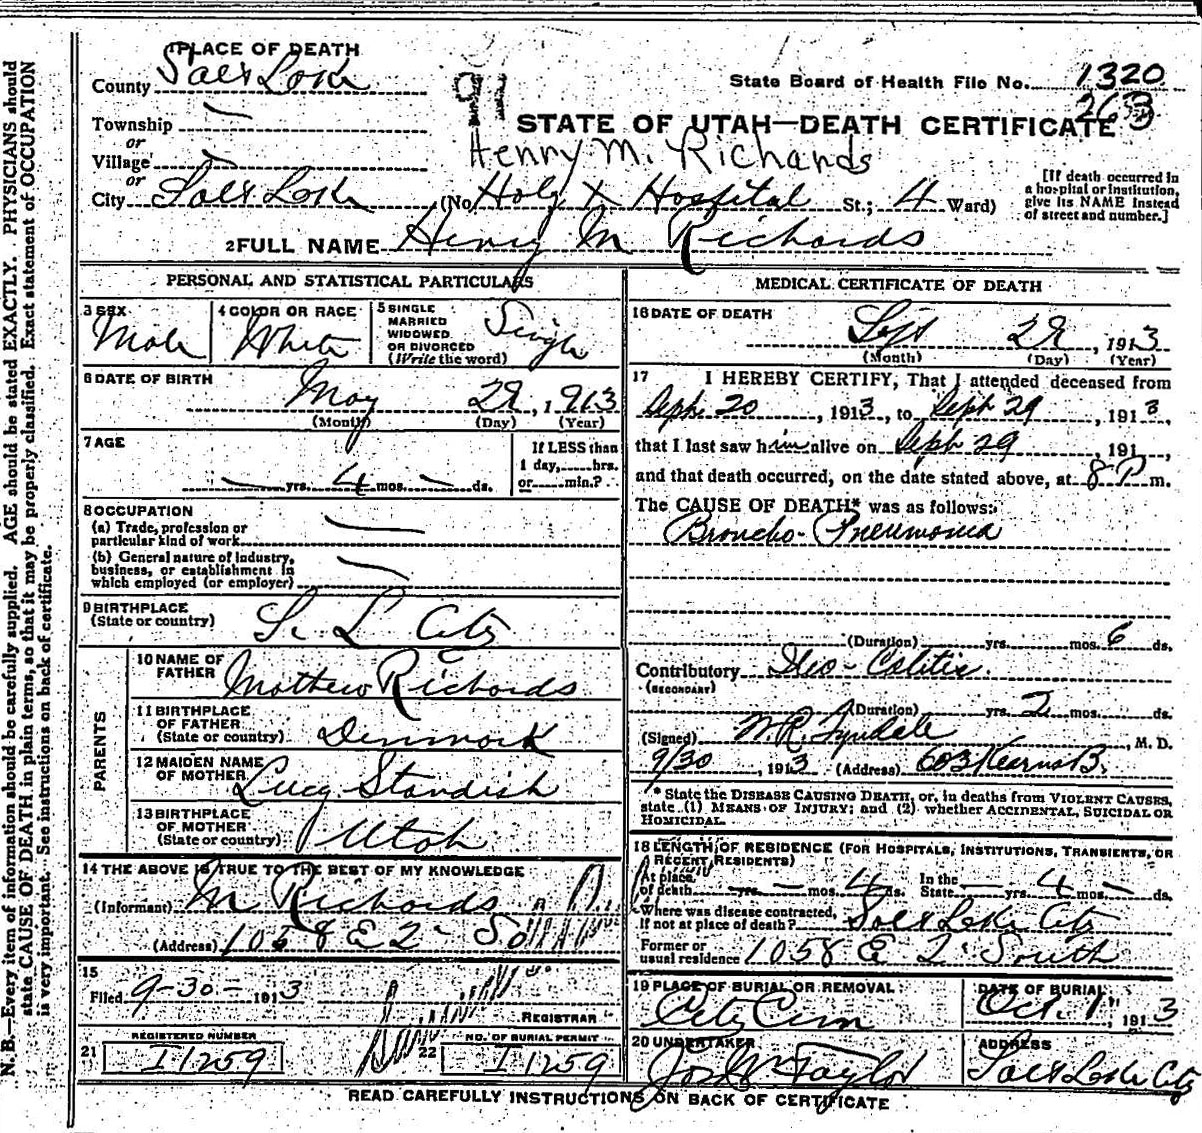 PLACE OF DEATH
County Salt Lake
State Board of Health File No. 1320
263
91
Township —
or
STATE OF UTAH—DEATH CERTIFICATE
Village —
Henry M. Richards
or
City Salt Lake (No. Holy X Hospital St.; 4 Ward)
[If death occurred in
a hospital or institution,
give its NAME instead
of street and number.]
2 FULL NAME Henry M Richards
PERSONAL AND STATISTICAL PARTICULARS
3 SEX
Male
4 COLOR OR RACE
White
5 SINGLE
MARRIED
WIDOWED
OR DIVORCED
(Write the word)
Single
6 DATE OF BIRTH
May 29, 1913
(Month) (Day) (Year)
7 AGE
— yrs. 4 mos. — ds.
If LESS than
1 day, hrs.
or min.?
8 OCCUPATION
(a) Trade, profession or
particular kind of work —
(b) General nature of industry,
business, or establishment in
which employed (or employer) —
9 BIRTHPLACE
(State or country) S. L City
PARENTS
10 NAME OF
FATHER Mathew Richards
11 BIRTHPLACE
OF FATHER
(State or country) Denmark
12 MAIDEN NAME
OF MOTHER Lucy Standish
13 BIRTHPLACE
OF MOTHER
(State or country) Utah
14 THE ABOVE IS TRUE TO THE BEST OF MY KNOWLEDGE
(Informant) M Richards
(Address) 1058 E 2 - So
15
Filed 9-30- 1913
REGISTRAR
REGISTERED NUMBER
21 I1259
NO. OF BURIAL PERMIT
22 I1259
MEDICAL CERTIFICATE OF DEATH
16 DATE OF DEATH
Sept 29, 1913
(Month) (Day) (Year)
17 I HEREBY CERTIFY, That I attended deceased from
Sept. 20, 1913, to Sept 29, 1913,
that I last saw him alive on Sept 29, 191 ,
and that death occurred, on the date stated above, at 8 P m.
The CAUSE OF DEATH* was as follows:
Broncho-Pneumonia
(Duration) yrs. mos. 6 ds.
Contributory Ileo-Colitis.
(SECONDARY)
(Duration) yrs. 2 mos. ds.
(Signed) W. R. Tyndale, M. D.
9/30, 1913 (Address) 603 Kearns B.
* State the DISEASE CAUSING DEATH, or, in deaths from VIOLENT CAUSES,
state (1) MEANS OF INJURY; and (2) whether ACCIDENTAL, SUICIDAL OR
HOMICIDAL.
18 LENGTH OF RESIDENCE (FOR HOSPITALS, INSTITUTIONS, TRANSIENTS, OR
RECENT RESIDENTS)
At place
of death yrs. — mos. 4 ds. In the
State — yrs. 4 mos. — ds.
Where was disease contracted,
If not at place of death? Salt Lake City
Former or
usual residence 1058 E 2 South
19 PLACE OF BURIAL OR REMOVAL
City Cem
DATE OF BURIAL
Oct. 1", 1913
20 UNDERTAKER
Jos Wm Taylor
ADDRESS
Salt Lake City
READ CAREFULLY INSTRUCTIONS ON BACK OF CERTIFICATE
N. B.—Every item of information should be carefully supplied. AGE should be stated EXACTLY. PHYSICIANS should
state CAUSE OF DEATH in plain terms, so that it may be properly classified. Exact statement of OCCUPATION
is very important. See instructions on back of certificate.